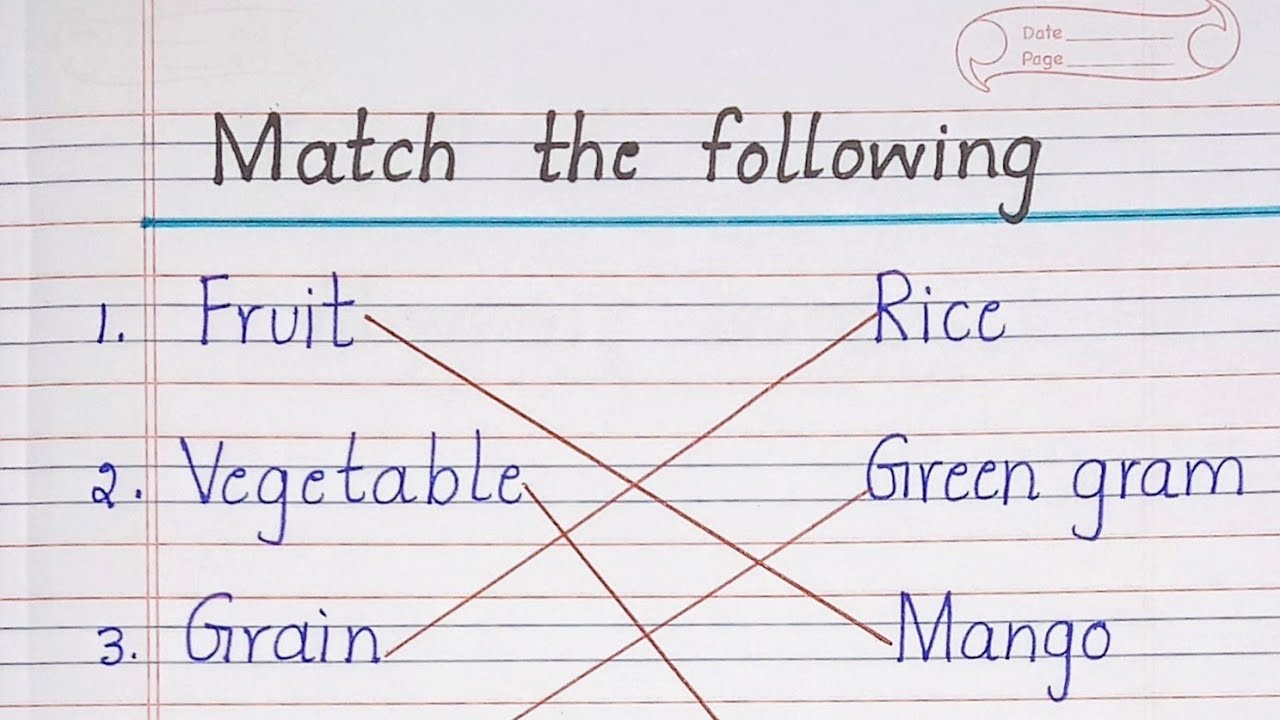 Date
Page
Match the following
1. Fruit Rice
2. Vegetable Green gram
3. Grain Mango